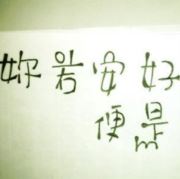 妳若安好
便是